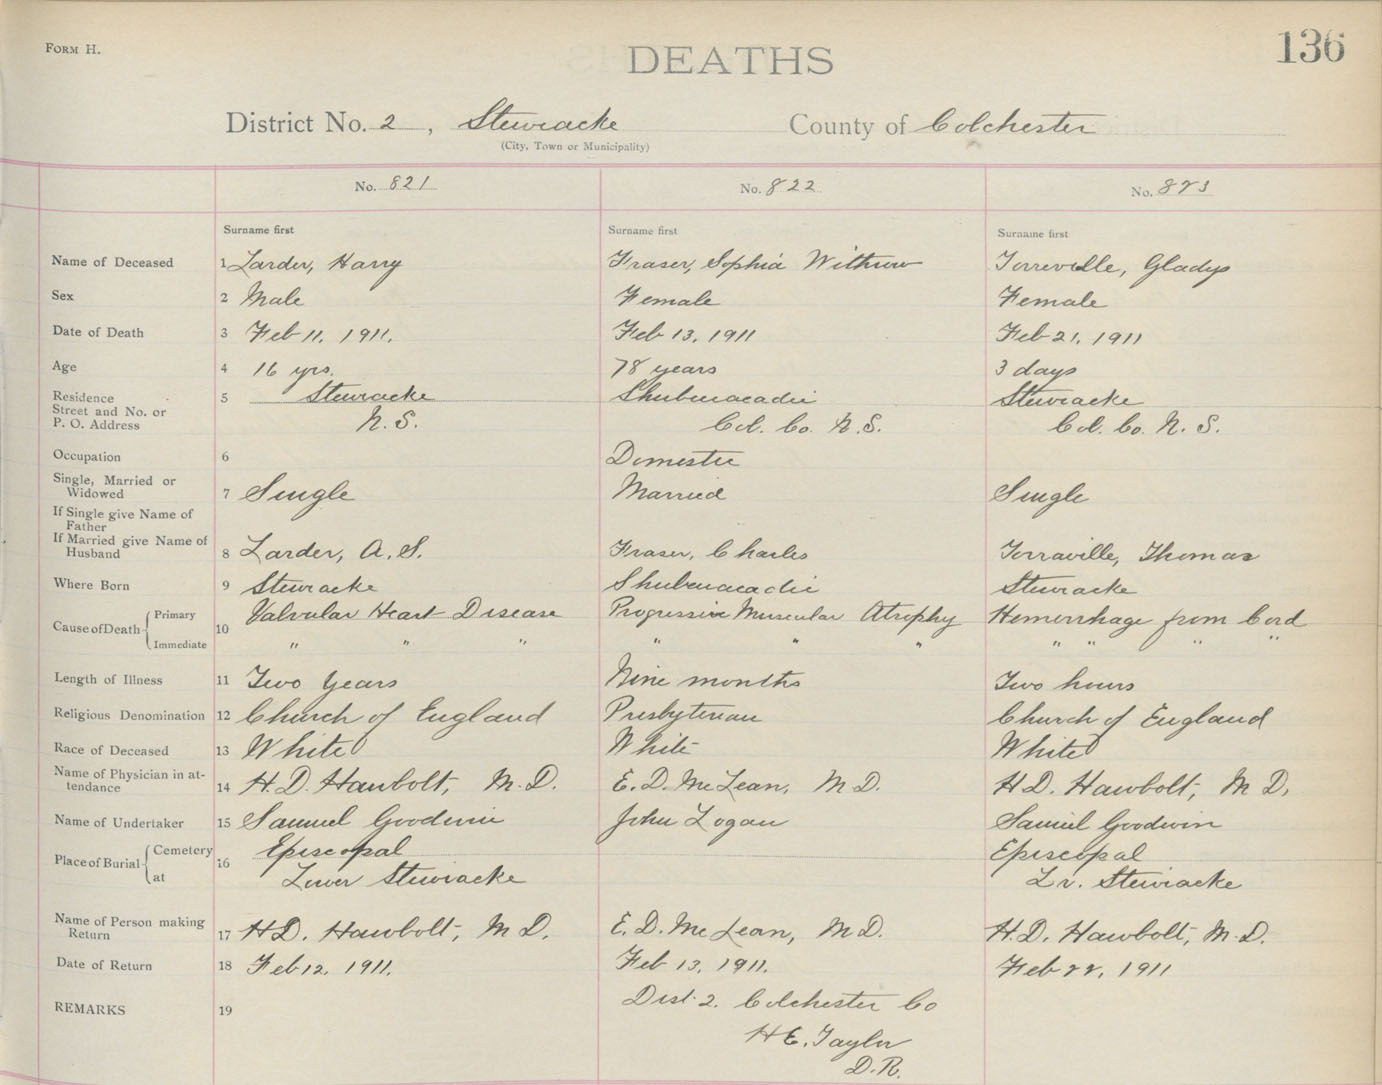 FORM H.
DEATHS
136
District No. 2, Stewiacke County of Colchester
(City, Town or Municipality)
No. 821 No. 822 No. 823
Surname first Surname first Surname first
Name of Deceased 1 Larder, Harry Fraser, Sophia Withrow Torreville, Gladys
Sex 2 Male Female Female
Date of Death 3 Feb 11, 1911. Feb 13, 1911 Feb 21, 1911
Age 4 16 yrs. 78 years 3 days
Residence 5 Stewiacke Shubenacadie Stewiacke
Street and No. or
P. O. Address N. S. Col. Co. N. S. Col. Co. N. S.
Occupation 6 Domestic
Single, Married or
Widowed 7 Single Married Single
If Single give Name of
Father
If Married give Name of
Husband 8 Larder, A. S. Fraser, Charles Torraville, Thomas
Where Born 9 Stewiacke Shubenacadie Stewiacke
Cause of Death Primary 10 Valvular Heart Disease Progressive Muscular Atrophy Hemorrhage from Cord
Immediate " " " " " " " " " "
Length of Illness 11 Two Years Nine months Two hours
Religious Denomination 12 Church of England Presbyterian Church of England
Race of Deceased 13 White White White
Name of Physician in at-
tendance 14 H. D. Hawbolt, M. D. E. D. McLean, M D. H D. Hawbolt, M D.
Name of Undertaker 15 Samuel Goodwin John Logan Samuel Goodwin
Place of Burial Cemetery 16 Episcopal Episcopal
at Lower Stewiacke Lr. Stewiacke
Name of Person making
Return 17 H D. Hawbolt, M D. E. D. McLean, M D. H. D. Hawbolt, M. D.
Date of Return 18 Feb 12, 1911. Feb 13, 1911. Feb 22, 1911
REMARKS 19 Dist 2. Colchester Co
H E. Taylor
D. R.